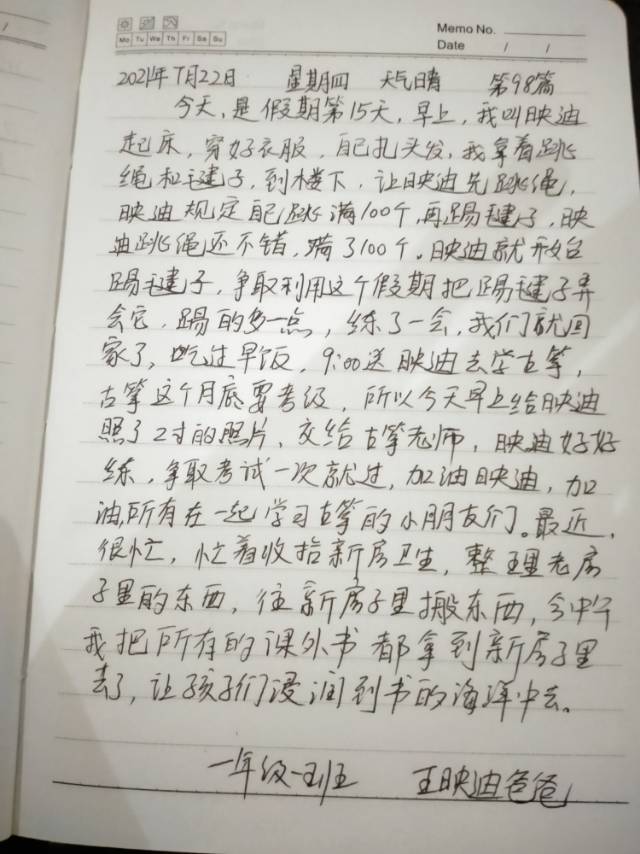 Memo No.
Mo Tu We Th Fr Sa Su
Date / /
2021年7月22日 星期四 天气晴 第98篇
今天,是假期第15天,早上,我叫映迪
起床,穿好衣服,自己扎头发,我拿着跳
绳和毽子,到楼下,让映迪先跳绳,
映迪规定自己跳满100个,再踢毽子,映
迪跳绳还不错,满了100个。映迪就开始
踢毽子,争取利用这个假期把踢毽子弄
会它,踢的多一点,练了一会,我们就回
家了,吃过早饭,9:00送映迪去学古筝,
古筝这个月底要考级,所以今天早上给映迪
照了2寸的照片、交给古筝老师,映迪好好
练,争取考试一次就过,加油映迪,加
油,所有在一起学习古筝的小朋友们。最近,
很忙,忙着收拾新房卫生,整理老房
子里的东西,往新房子里搬东西,今中午
我把所有的课外书都拿到新房子里
去了,让孩子们浸润到书的海洋中去。
一年级一班 王映迪爸爸